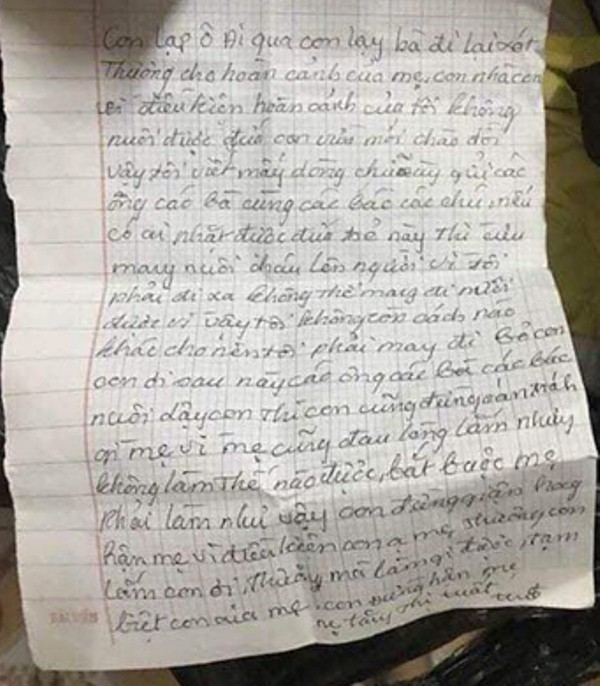 Con lạp ô Đi qua con lạy bà đi lại xót
Thương cho hoàn cảnh của mẹ con nhà con
vì điều kiện hoàn cảnh của tôi không
nuôi được đứa con vừa mới chào đời
vậy tôi viết mấy dòng chữ này gửi các
ông các bà cùng các bác các chú, nếu
có ai nhặt được đứa trẻ này thì cưu
mang nuôi cháu lên người vì tôi
phải đi xa không thể mang đi nuôi
được vì vậy tôi không còn cách nào
khác cho nên tôi phải may đi Bỏ con
con đi sau này các ông các Bà các Bác
nuôi dậy con thì con cũng đừng oán trách
gì mẹ vì mẹ cũng đau lòng lắm nhưng
không làm thế nào được, bắt buộc mẹ
phải làm như vậy con đừng giận
hận mẹ vì điều kiện con ạ mẹ thương con
lắm con ơi, Thương mà làm gì được, tạm
biệt con của mẹ, con đừng hận mẹ